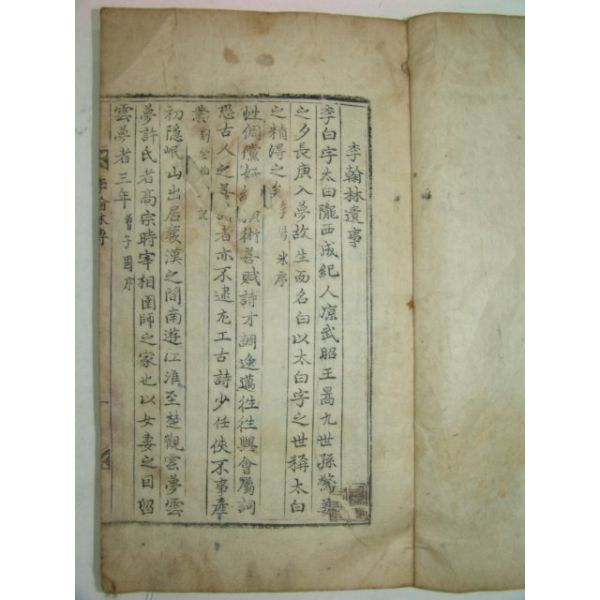 李翰林遺事
李白字太白隴西成紀人凉武昭王暠九世孫驚姜
之夕長庚入夢故生而名白以太白字之世稱太白
之精得之矣 李陽氷序
性倜儻好 術善賦詩才調逸邁往往興會屬詞
恐古人之善 者亦不逮尤工古詩少任俠不事產
業 劉全白 記
初隐岷山出居襄漢之間南遊江淮至楚觀雲夢雲
夢許氏者高宗時宰相圉師之家也以女妻之因留
雲夢者三年 曾子固序
李翰林